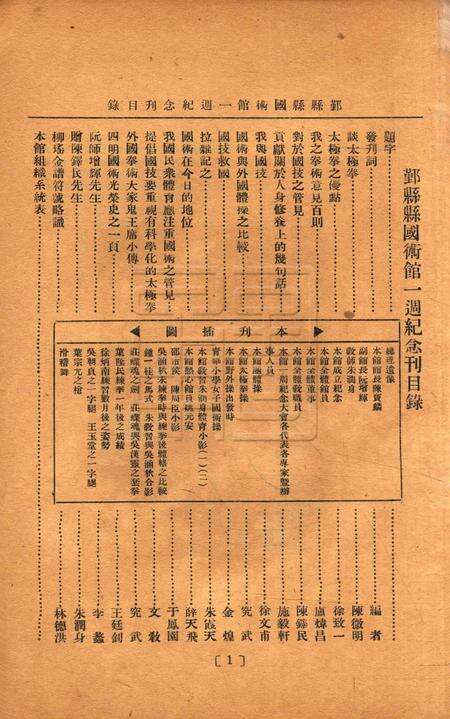 鄞縣縣國術館一週紀念刊目錄
鄞縣縣國術館一週紀念刊目錄
題字
發刊詞 編者
談太極拳 陳微明
太極拳之優點 徐致一
我之拳術意見百則 盧煒昌
對於國技之管見 陳鐸民
貢獻關於人身修養上的幾句話 施毅軒
我與國技 徐文甫
國術與外國體操之比較 究武
國技救國 金煌
拉雜記之 朱霞天
國術在今日的地位 薛天飛
我國民衆體育應注重國術之管見 于鳳園
提倡國技要重視有科學化的太極拳 文敎
外國拳術大家鬼王席小傳 究武
四明國術光榮史之一頁 王廷釗
阮師增輝先生 李蠡
贈陳鐸民先生 朱潤身
柳瑤金譜符號略識 林德洪
本館組織系統表
本刊插圖
總理遺像
本館館長陳寶麟
副館長阮增輝
敎師朱潤身
本館成立紀念
本館全體館員
本館全體董事
本館全體敎職員
本館一周紀念大會各代表各專家暨辦
事人員
本館團體操
本館太極拳操
青華小學女子國術操
本館野外操出發時
本館敎習朱潤身體育小影(一)(二)
本館熱心館員姚元安
邵市俠 陳周臣小影
吳涵秋未練拳時與練拳後體格之比較
鍾一桂之馬式 朱敎習與吳涵秋合影
莊蝶魂之劍 莊蝶魂與吳漢靈之套拳
葉隆民練拳一年後之成績
徐炳南練習數月後之姿勢
吳朝良之一字腿 王玉堂之一字腿
葉宗元之槍
滑稽舞
〔1〕